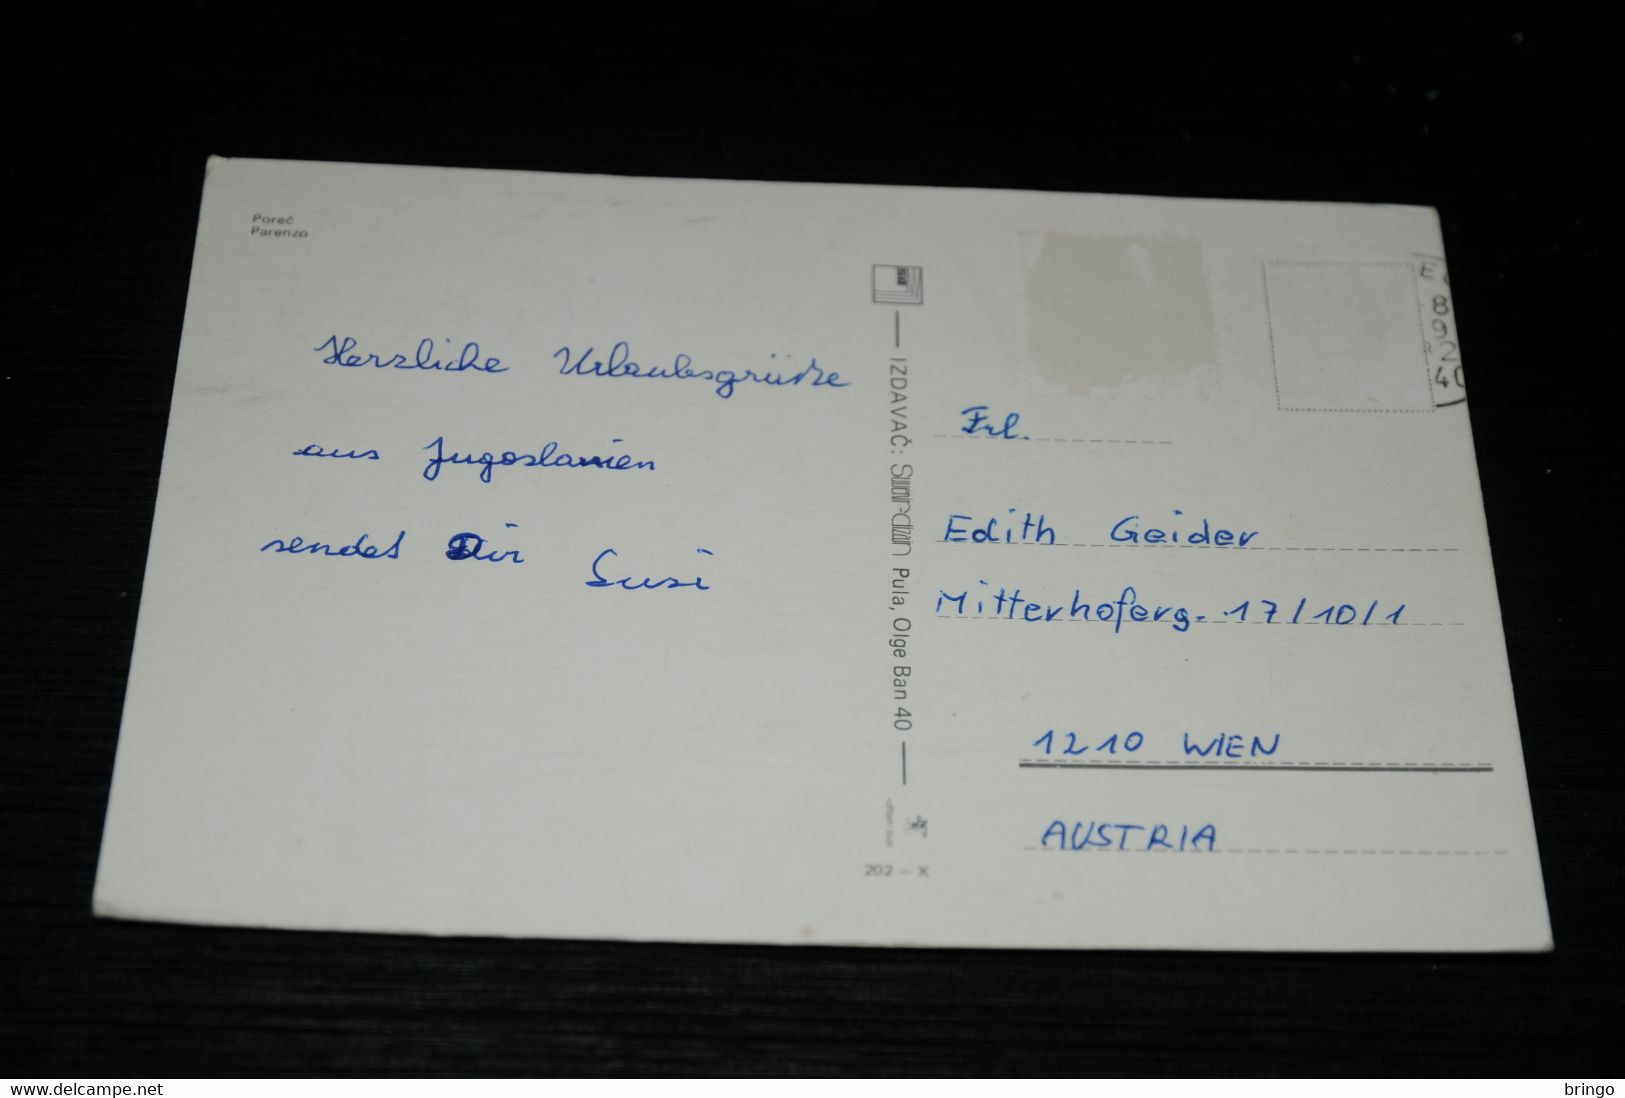 Poreč
Parenzo
Herzliche Urlaubsgrüße
aus Jugoslawien
sendet Dir Susi
IZDAVAČ: Pula, Olge Ban 40
202 – X
Frl.
Edith Geider
Mitterhoferg. 17/10/1
1210 WIEN
AUSTRIA
www.delcampe.net
bringo